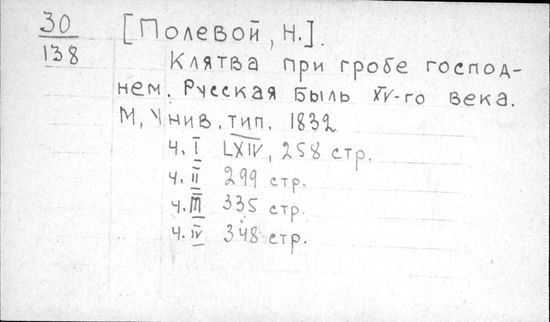 30 [Полевой, Н.].
138 Клятва при гробе господ-
нем. Русская быль XV-го века.
М, Унив. тип. 1832
ч. I LXIV, 258 стр.
ч. II 299 стр.
ч. III 335 стр.
ч. IV 348 стр.